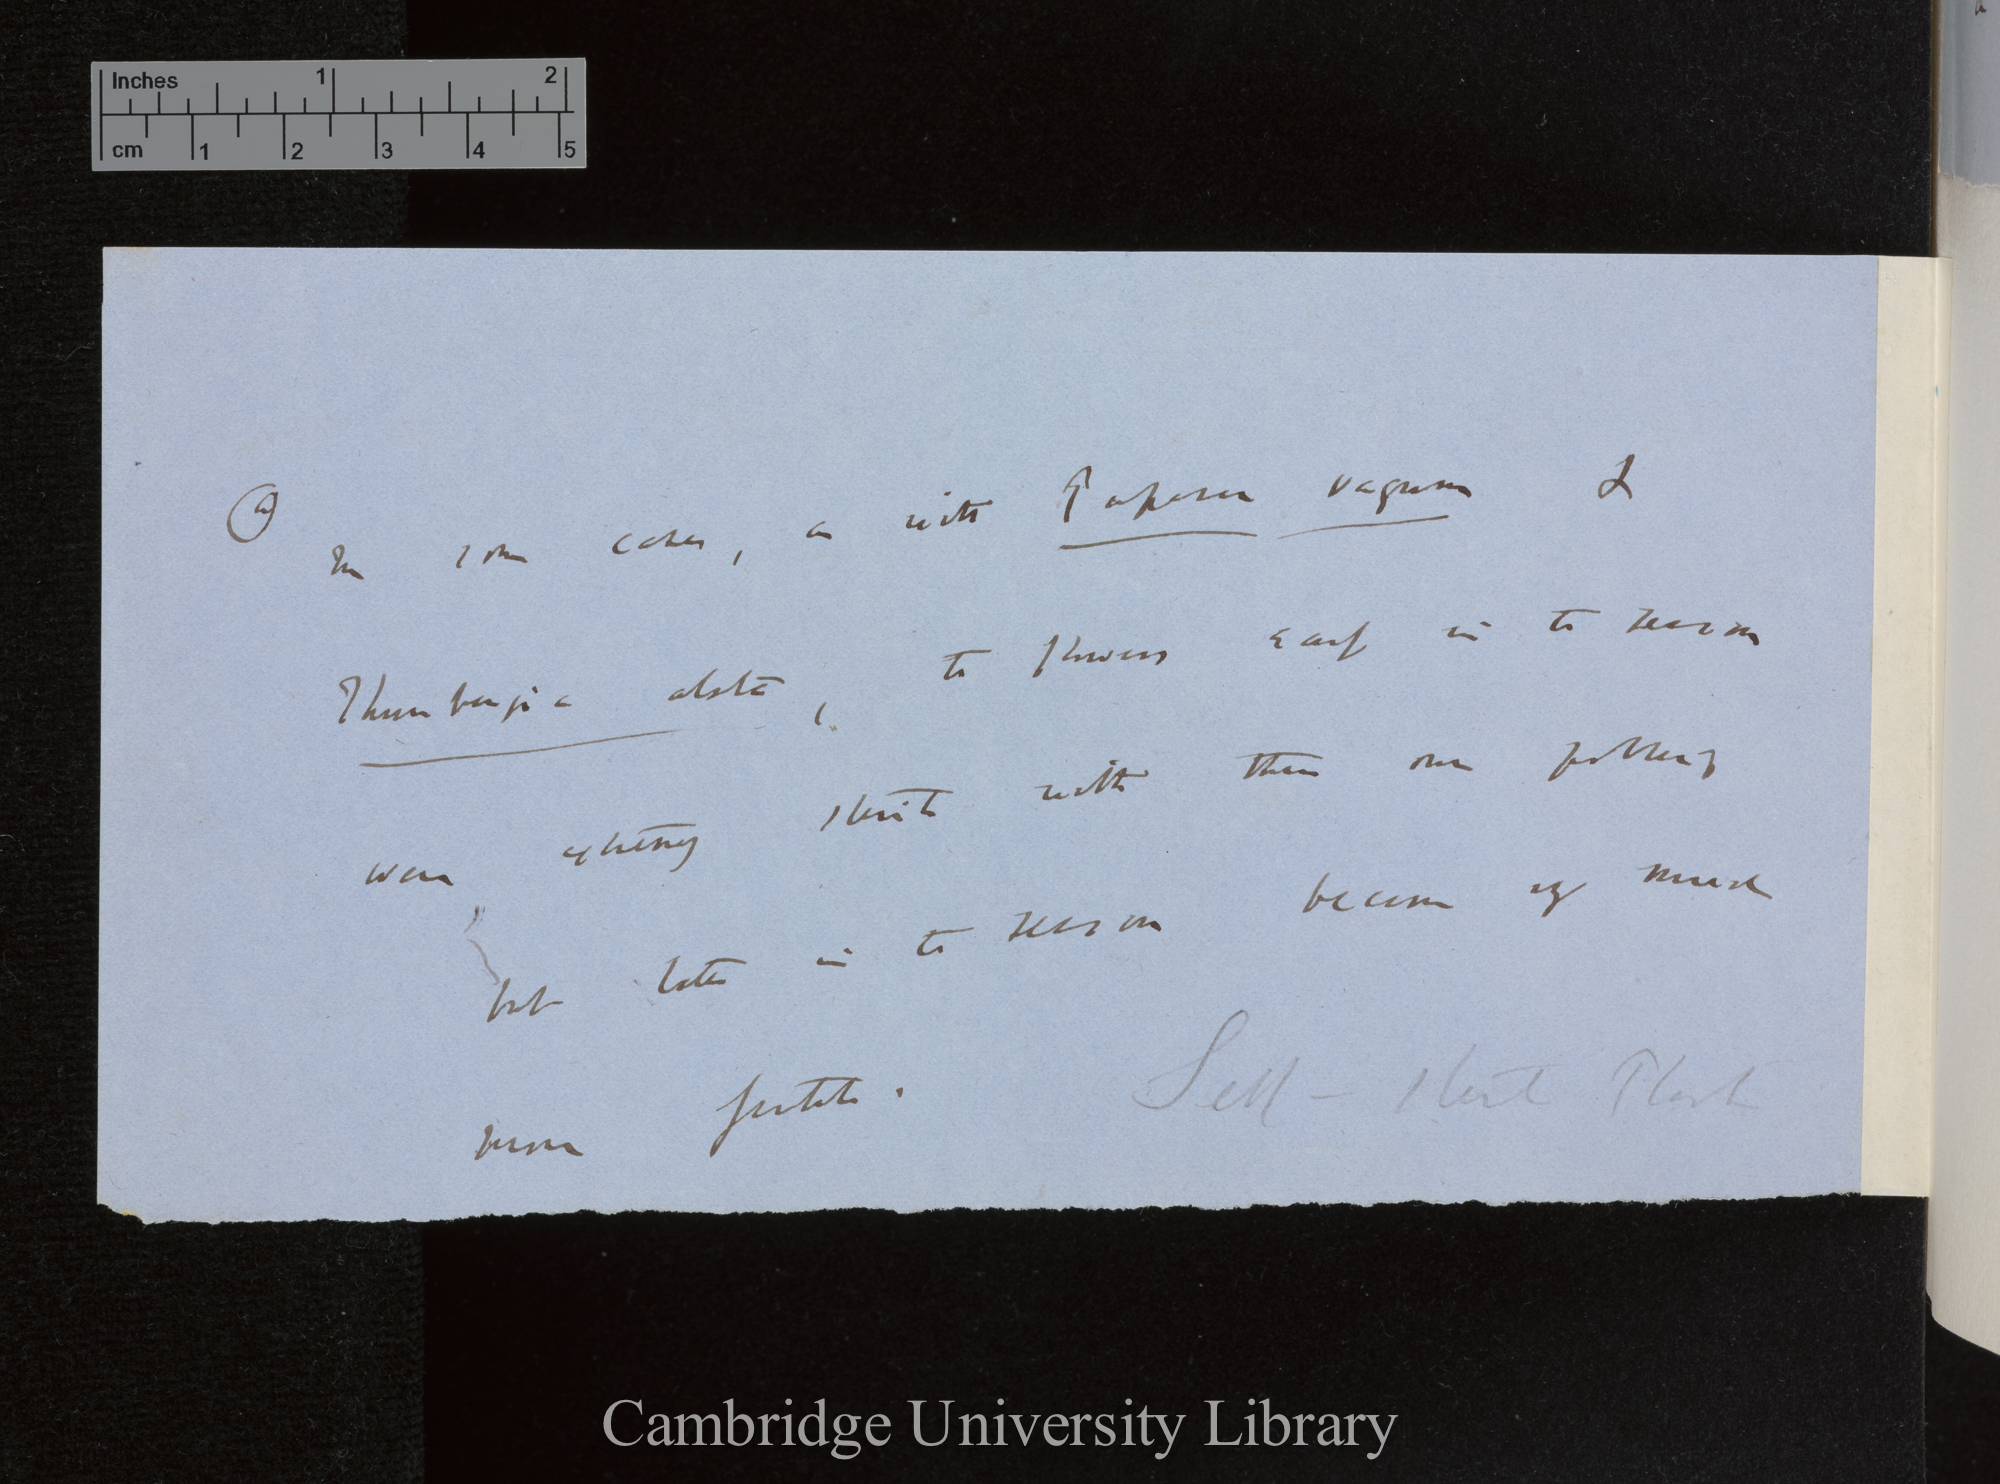 Inches 1 2
cm 1 2 3 4 5
(a) In some cases, as with Papaver vagum &
Thunbergia alata, the flowers early in the season
were quite sterile with their own pollen,
but late in the season became very much
more fertile.
Self-sterile Plants
Cambridge University Library